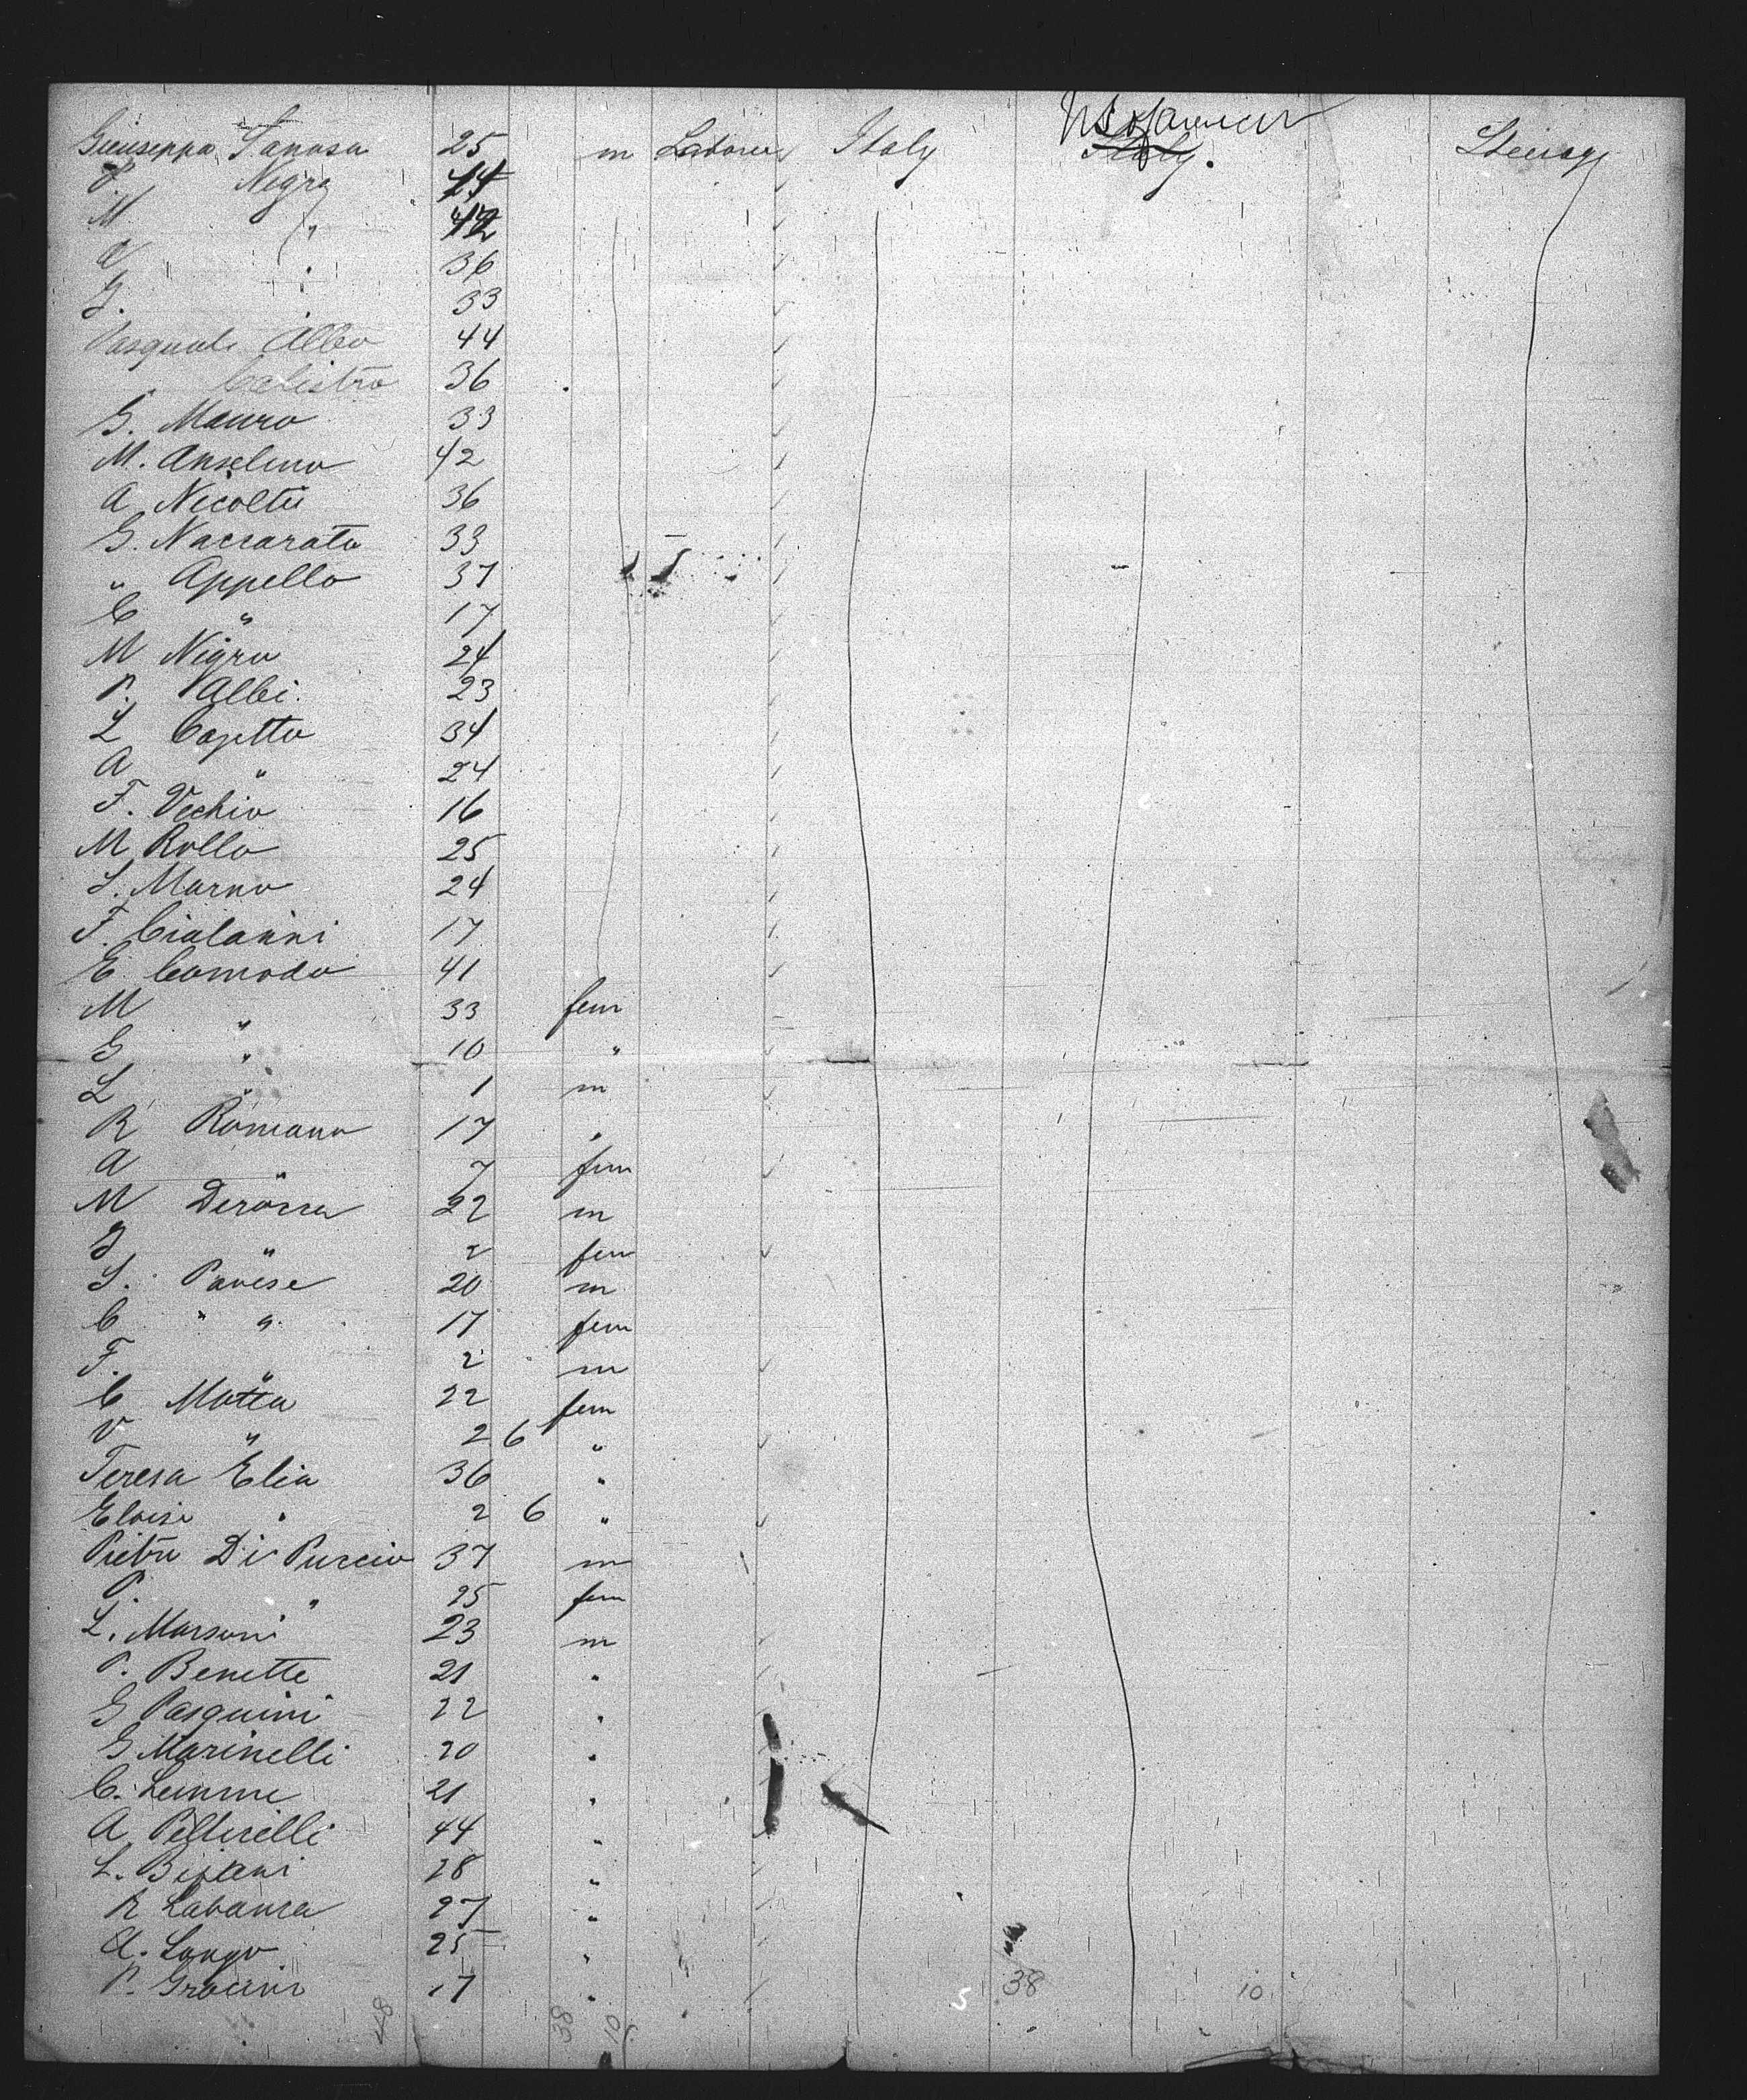 Giuseppa Sanasa 25 m Laborer Italy US of America Italy. Steerage
P. Negro 24
M " 42
V " 36
G. " 33
Pasquale Albo 44
" Calistro 36
G. Mauro 33
M. Anselmo 42
A Nicoltii 36
G. Naccarato 33
" Appello 37
C " 17
M Nigro 24
P. Albi 23
L Capetto 34
A " 24
F. Vechio 16
M Rollo 25
S. Marno 24
F. Cialanni 17
E. Comodo 41
M " 33 fem
G " 10 "
L " 1 m
R Romano 17 "
A " 7 fem
M Derossa 22 m
G " 2 fem
S. Pavese 20 m
C " " 17 fem
F. " 2 m
C Motta 22 fem
V " 2 6 "
Teresa Elia 36 "
Eloisi " 2 6 "
Pietro Di Puccio 37 m
P. " 25 fem
L. Marsoni 23 m
P. Benette 21 "
G Pasquini 22 "
G Marinelli 20 "
C. Lemme 21 "
A Pelterelli 44 "
L. 28 "
R Labanca 27 "
A. Longo 25 "
P. Gracini 17 "
38 10
48 38 10